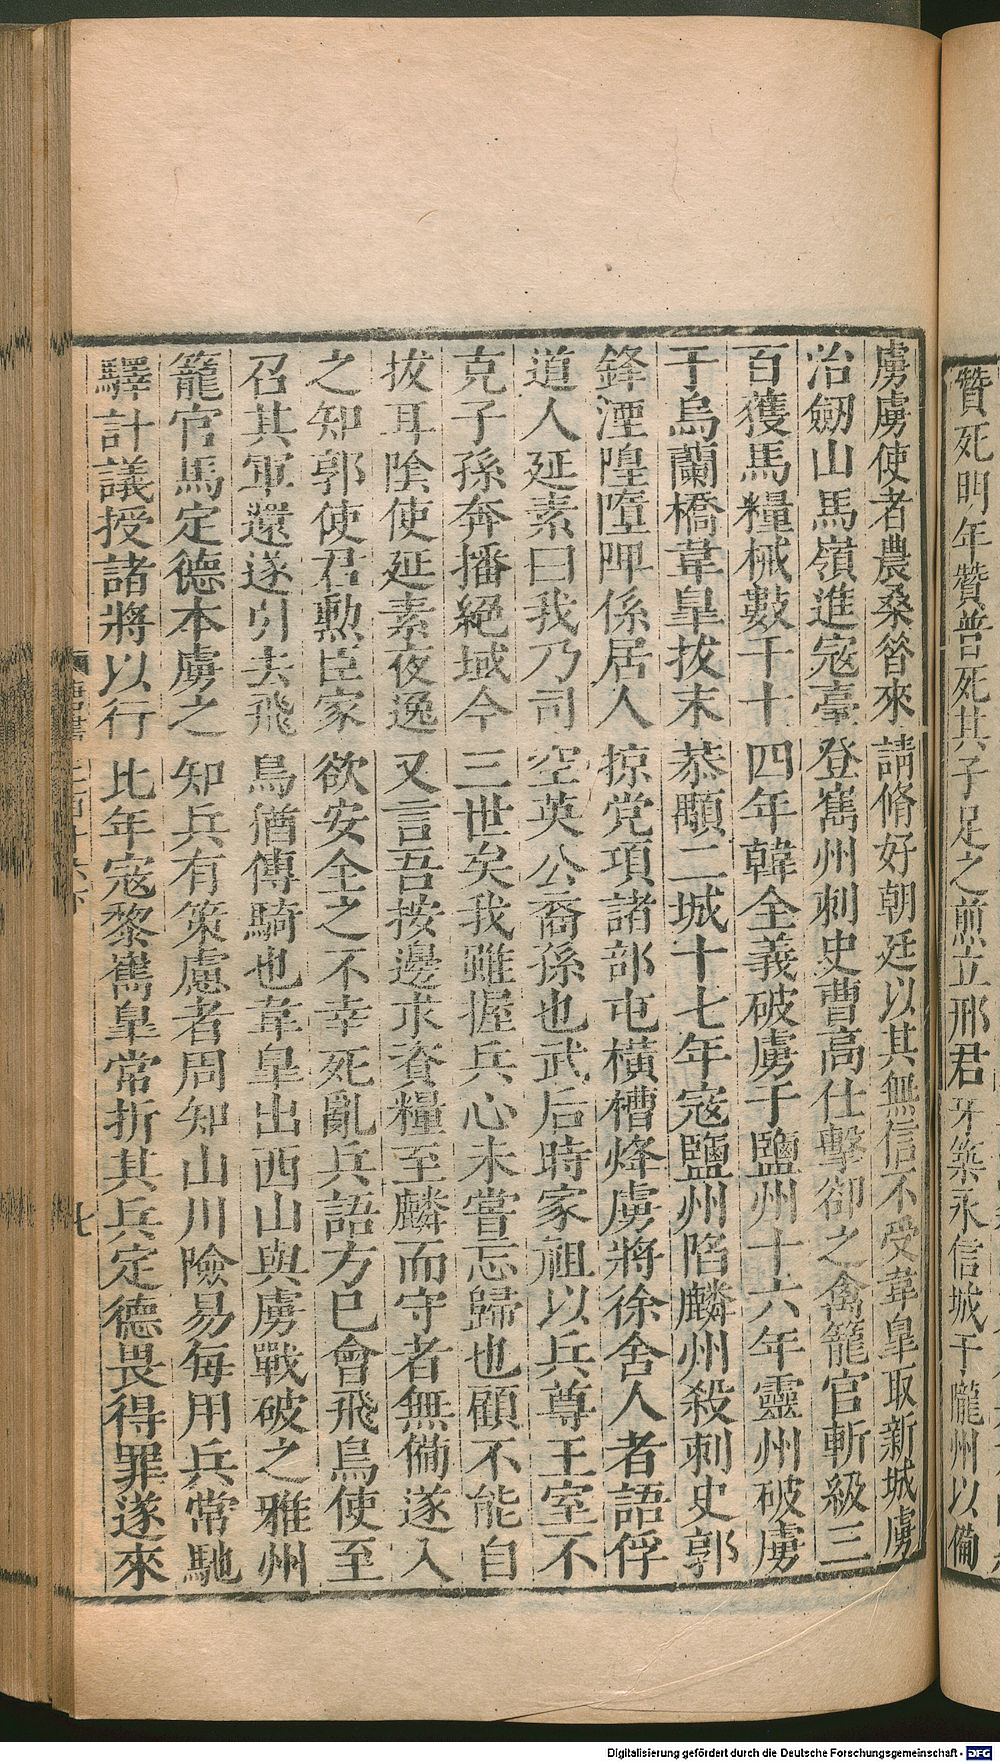 贊死明年贊普死其子足之煎立邢君牙築永信城于隴州以備
虜虜使者農桑昝來請脩好朝廷以其無信不受韋皐取新城虜
治劒山馬嶺進寇臺登雟州刺史曹高仕擊卻之禽籠官斬級三
百獲馬糧械數千十四年韓全義破虜于鹽州十六年靈州破虜
于烏蘭橋韋皐拔末恭顒二城十七年寇鹽州陷麟州殺刺史郭
鋒湮隍墮陴係居人掠党項諸部屯橫槽烽虜將徐舍人者語俘
道人延素曰我乃司空英公裔孫也武后時家祖以兵尊王室不
克子孫奔播絕域今三世矣我雖握兵心未嘗忘歸也顧不能自
拔耳陰使延素夜逸又言吾按邊求資糧至麟而守者無備遂入
之知郭使君勲臣家欲安全之不幸死亂兵語方已會飛鳥使至
召其軍還遂引去飛鳥猶傳騎也韋皐出西山與虜戰破之雅州
籠官馬定德本虜之知兵有策慮者周知山川險易每用兵常馳
驛計議授諸將以行比年寇黎雟皐常折其兵定德畏得罪遂來
七
Digitalisierung gefördert durch die Deutsche Forschungsgemeinschaft - DFG